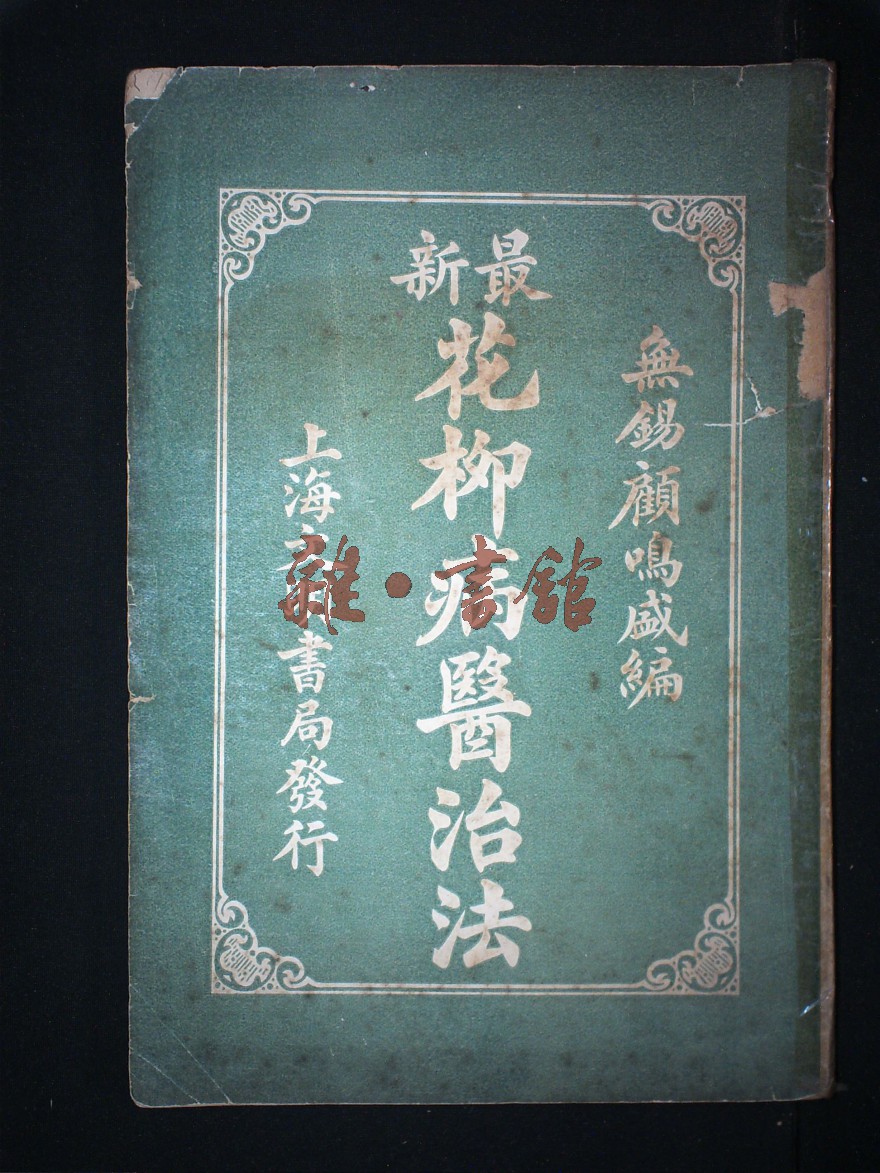 無錫顧鳴盛編
最新
花柳病醫治法
上海文書局發行
雜·書館